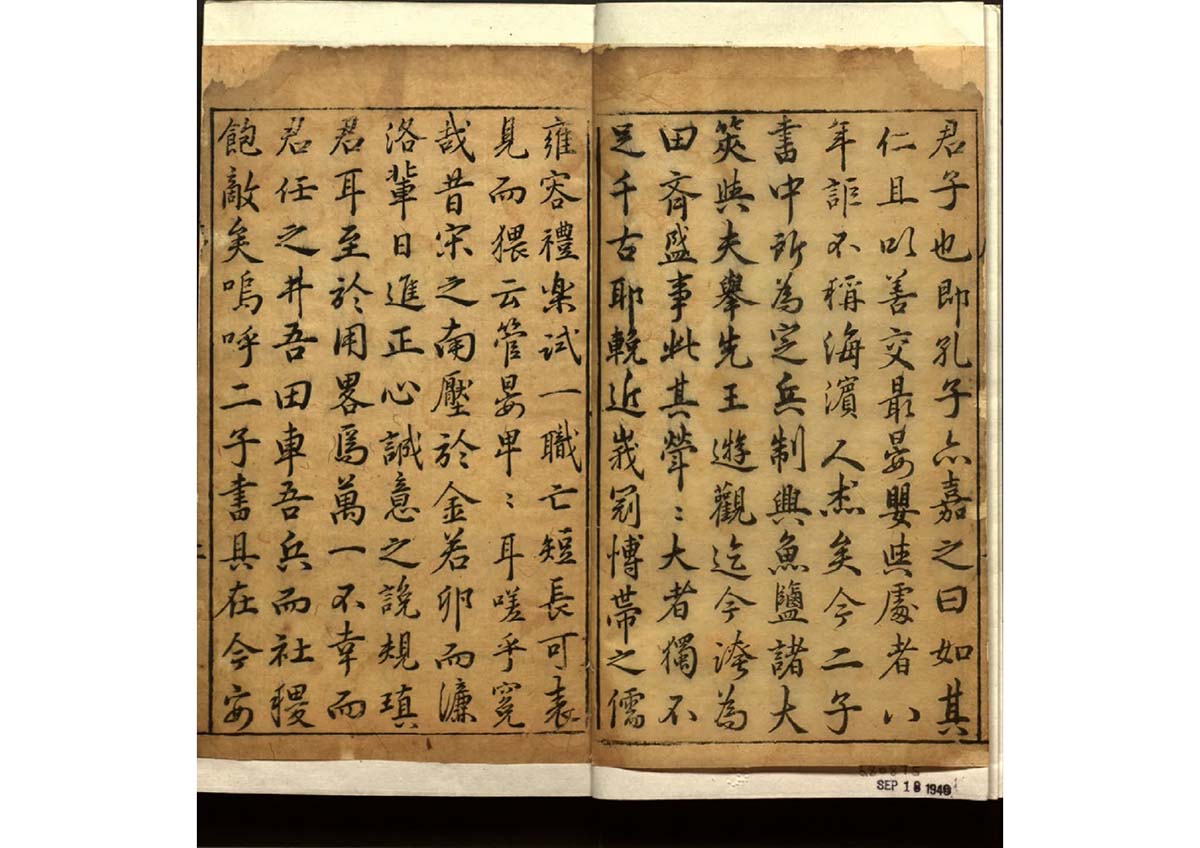 君子也即孔子亦嘉之曰如其
仁且以善交最晏嬰與處者八
年詎不稱海濱人杰矣今二子
書中所為定兵制興魚鹽諸大
筴與夫舉先王遊觀迄今誇為
田齊盛事此其犖〻大者獨不
足千古耶輓近峩冠愽帶之儒
雍容禮楽試一職亡短長可表
見而猥云管晏卑〻耳嗟乎冤
哉昔宋之南壓於金若卵而濂
洛輩日進正心誠意之說規瑱
君耳至於用畧焉萬一不幸而
君任之井吾田車吾兵而社稷
飽敵矣嗚呼二子書具在今安
SEP 18 1940